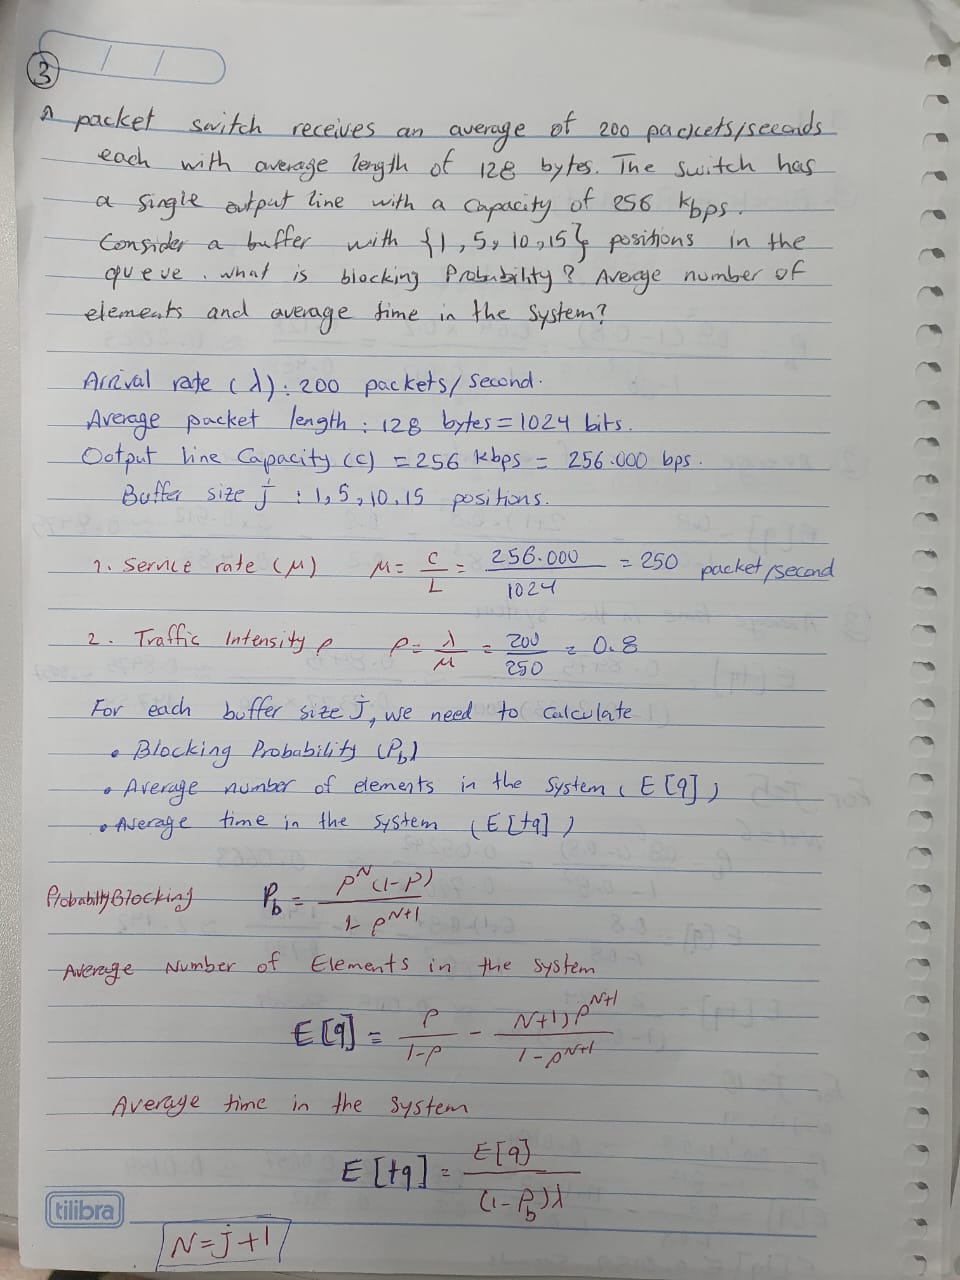 3
A packet switch receives an average of 200 packets/seconds
each with average length of 128 bytes. The switch has
a single output line with a capacity of 256 kbps.
Consider a buffer with {1, 5, 10, 15} positions in the
queue. what is blocking Probability? Average number of
elements and average time in the system?
Arrival rate (λ): 200 packets/second.
Average packet length : 128 bytes = 1024 bits.
Output line Capacity (C) = 256 kbps = 256.000 bps.
Buffer size j : 1, 5, 10, 15 positions.
1. Service rate (μ) μ = C/L = 256.000/1024 = 250 packet/second
2. Traffic Intensity ρ ρ = λ/μ = 200/250 = 0.8
For each buffer size J, we need to calculate
• Blocking Probability (Pb)
• Average number of elements in the System ( E[q] )
• Average time in the system ( E[tq] )
Probabilty Blocking Pb = ρ^N (1-ρ) / 1- ρ^N+1
Average Number of Elements in the system
E[q] = ρ/1-ρ - N+1)ρ^N+1 / 1-ρ^N+1
Average time in the system
E[tq] = E[q] / (1-Pb)λ
tilibra
N=j+1